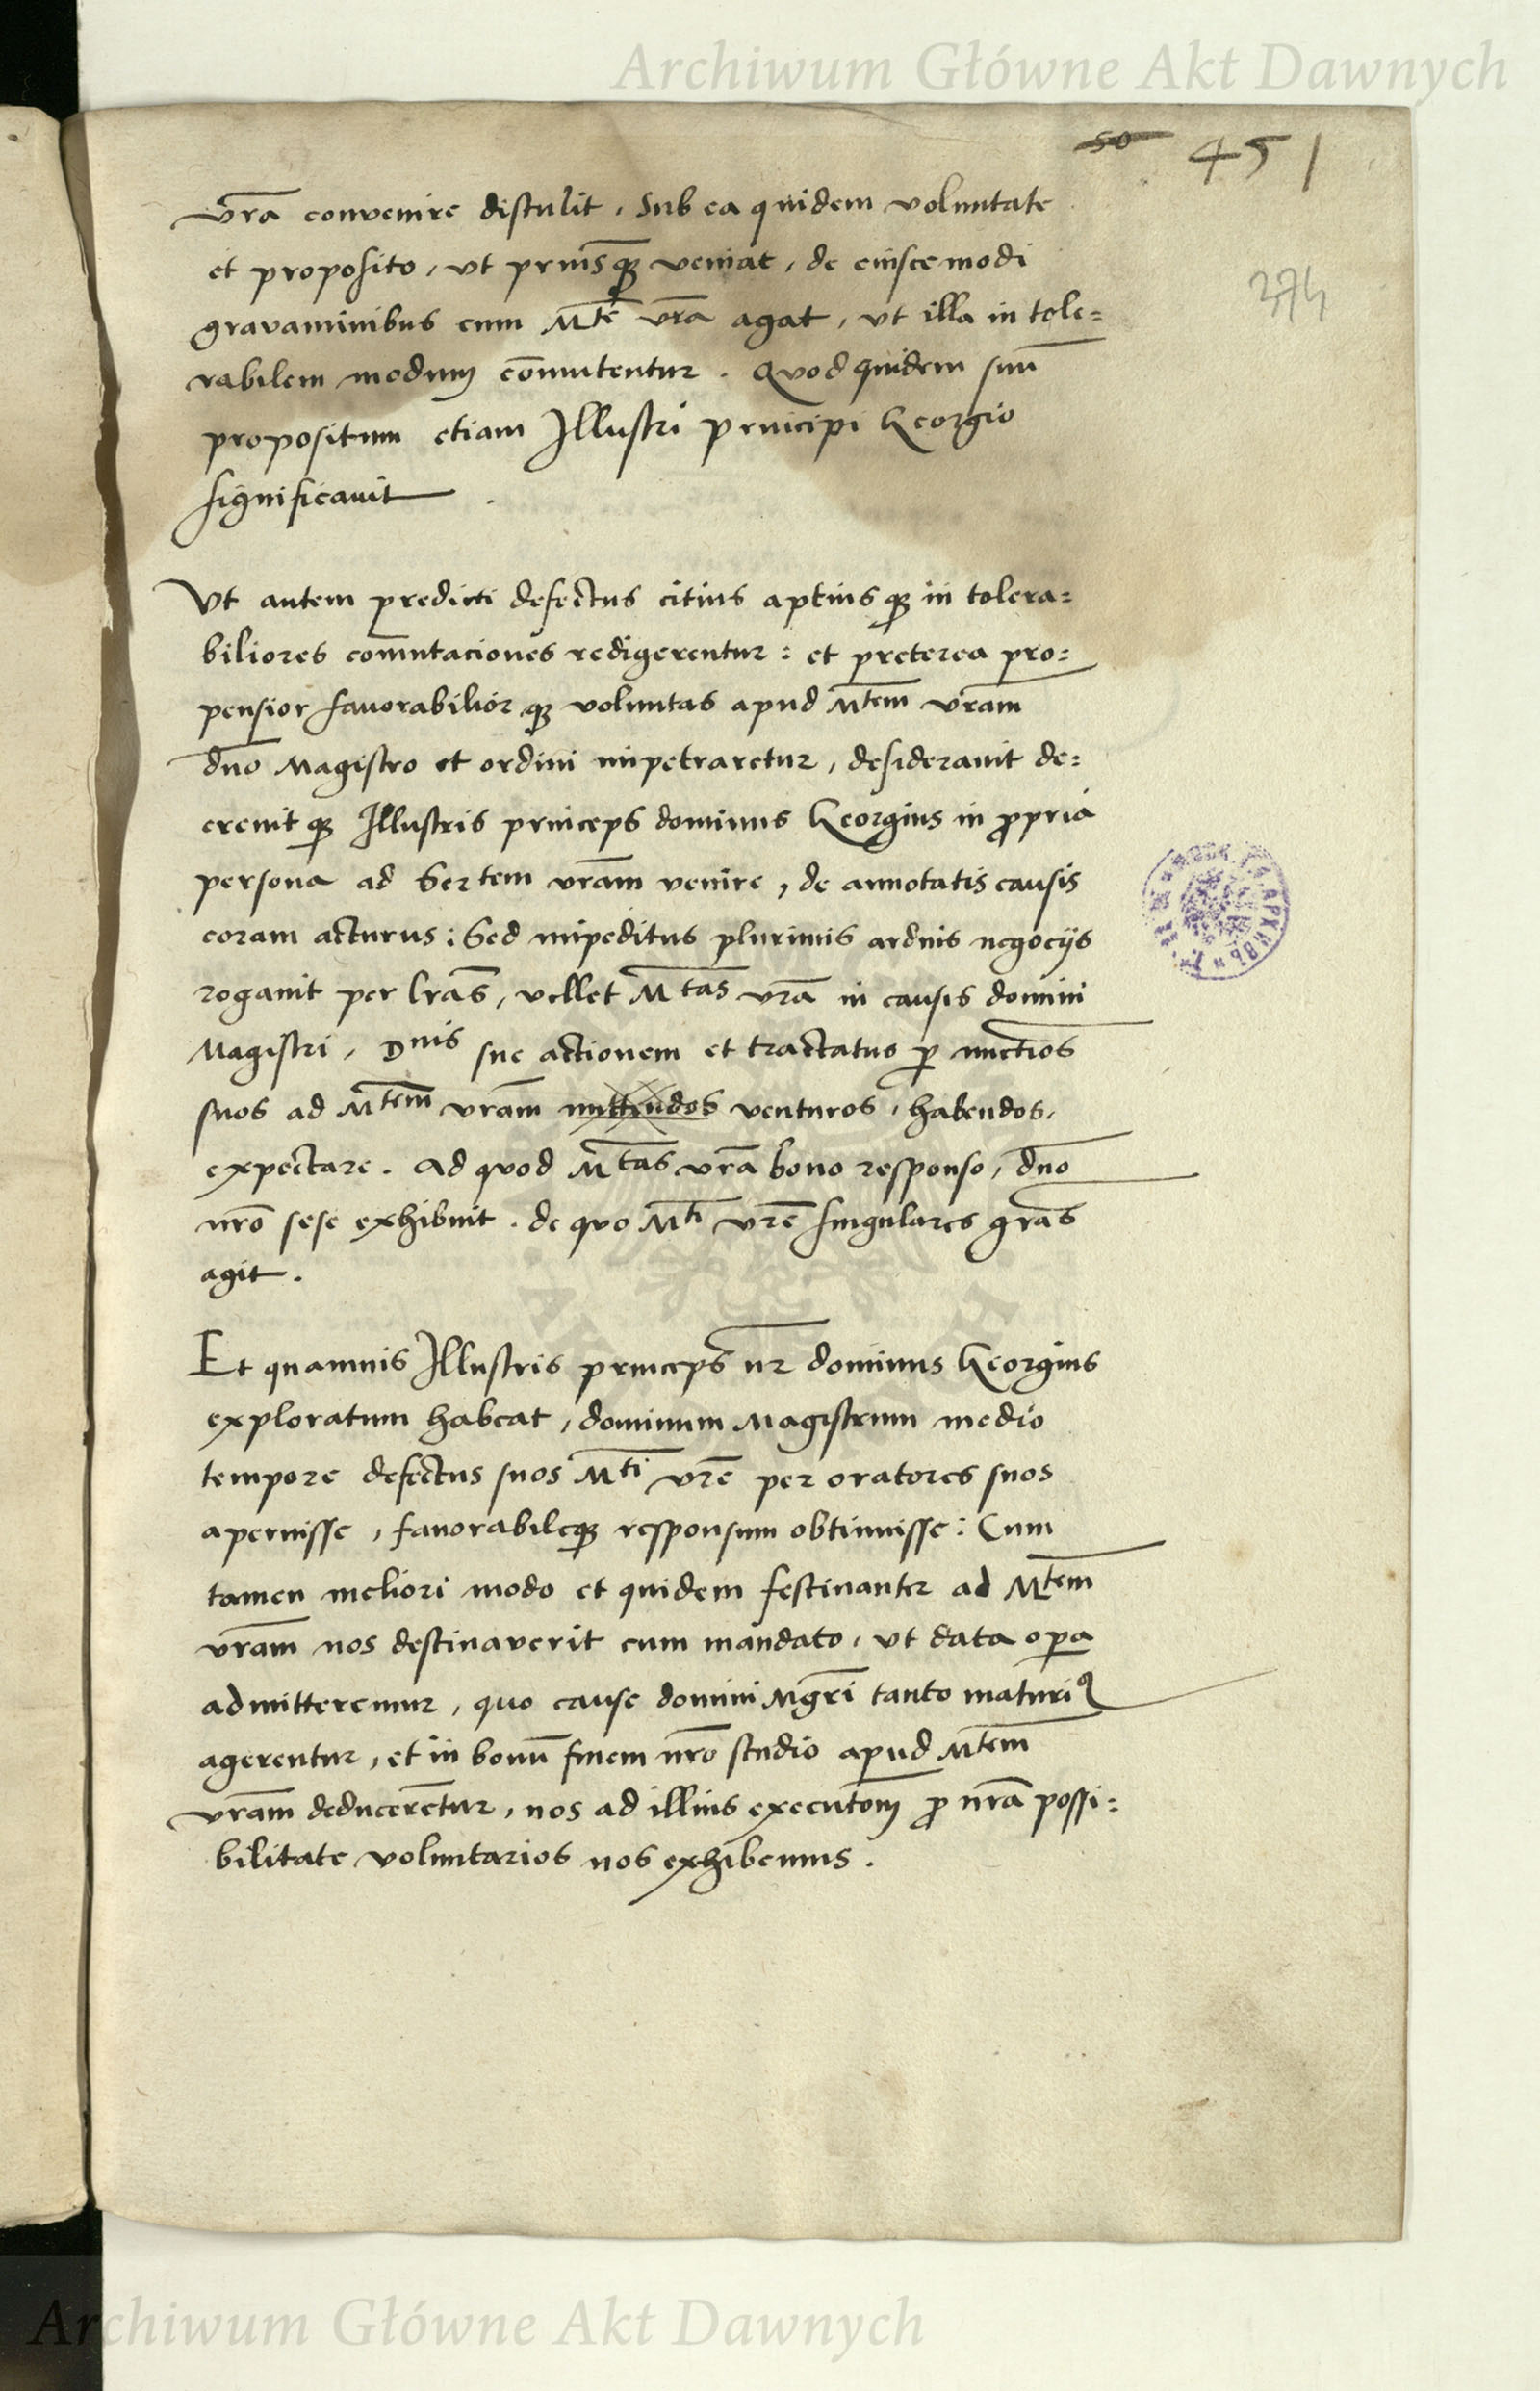 Archiwum Główne Akt Dawnych
50 451
274
vr̄a convenire distulit, Sub ea quidem voluntate
et proposito, ut priusq̨ veniat, de eiuscemodi
gravaminibus cum M̄te vr̄a agat, ut illa in tole=
rabilem modum com̄utentur. Quod quidem suū
propositum etiam Illustri principi Georgio
significauit.
Ut autem predicti defectus citius aptiusq̨ in tolera=
biliores com̄utaciones redigerentur: et preterea pro=
pensior favorabiliorq̨ voluntas apud M̄tem vr̄am
dn̄o Magistro et ordini impetraretur, desiderauit de=
creuitq̨ Illustris princeps dominus Georgius in ꝓpria
persona ad Sertem vr̄am venire, de annotatis causis
coram acturus: Sed impeditus plurimis arduis negocijs
rogauit per lr̄as, vellet M̄tas vr̄a in causis domini
Magistri, Dnis sue actionem et tractatus p̱ nuctios
suos ad M̄tem vr̄am mittendos venturos, habendos,
expectare. Ad quod M̄tas vr̄a bono responso, dn̄o
nr̄o sese exhibuit. de quo M̄ti vr̄e singulares gr̄as
agit.
Et quamuis Illustris princeps nr̄ dominus Georgius
exploratum habeat, dominum Magistrum medio
tempore defectus suos M̄ti vr̄e per oratores suos
aperuisse, fauorabileq̨ responsum obtinuisse: Cum
tamen meliori modo et quidem festinanter ad M̄tem
vr̄am nos destinaverit cum mandato, ut data oꝑa
admitteremur, quo cause domini Mgr̄i tanto maturiꝰ
agerentur, et in bonū finem nr̄o studio apud M̄tem
vr̄am deducerētur, nos ad illius executōem ꝓ nr̄a possi=
bilitate voluntarios nos exhibemus.
Archiwum Główne Akt Dawnych